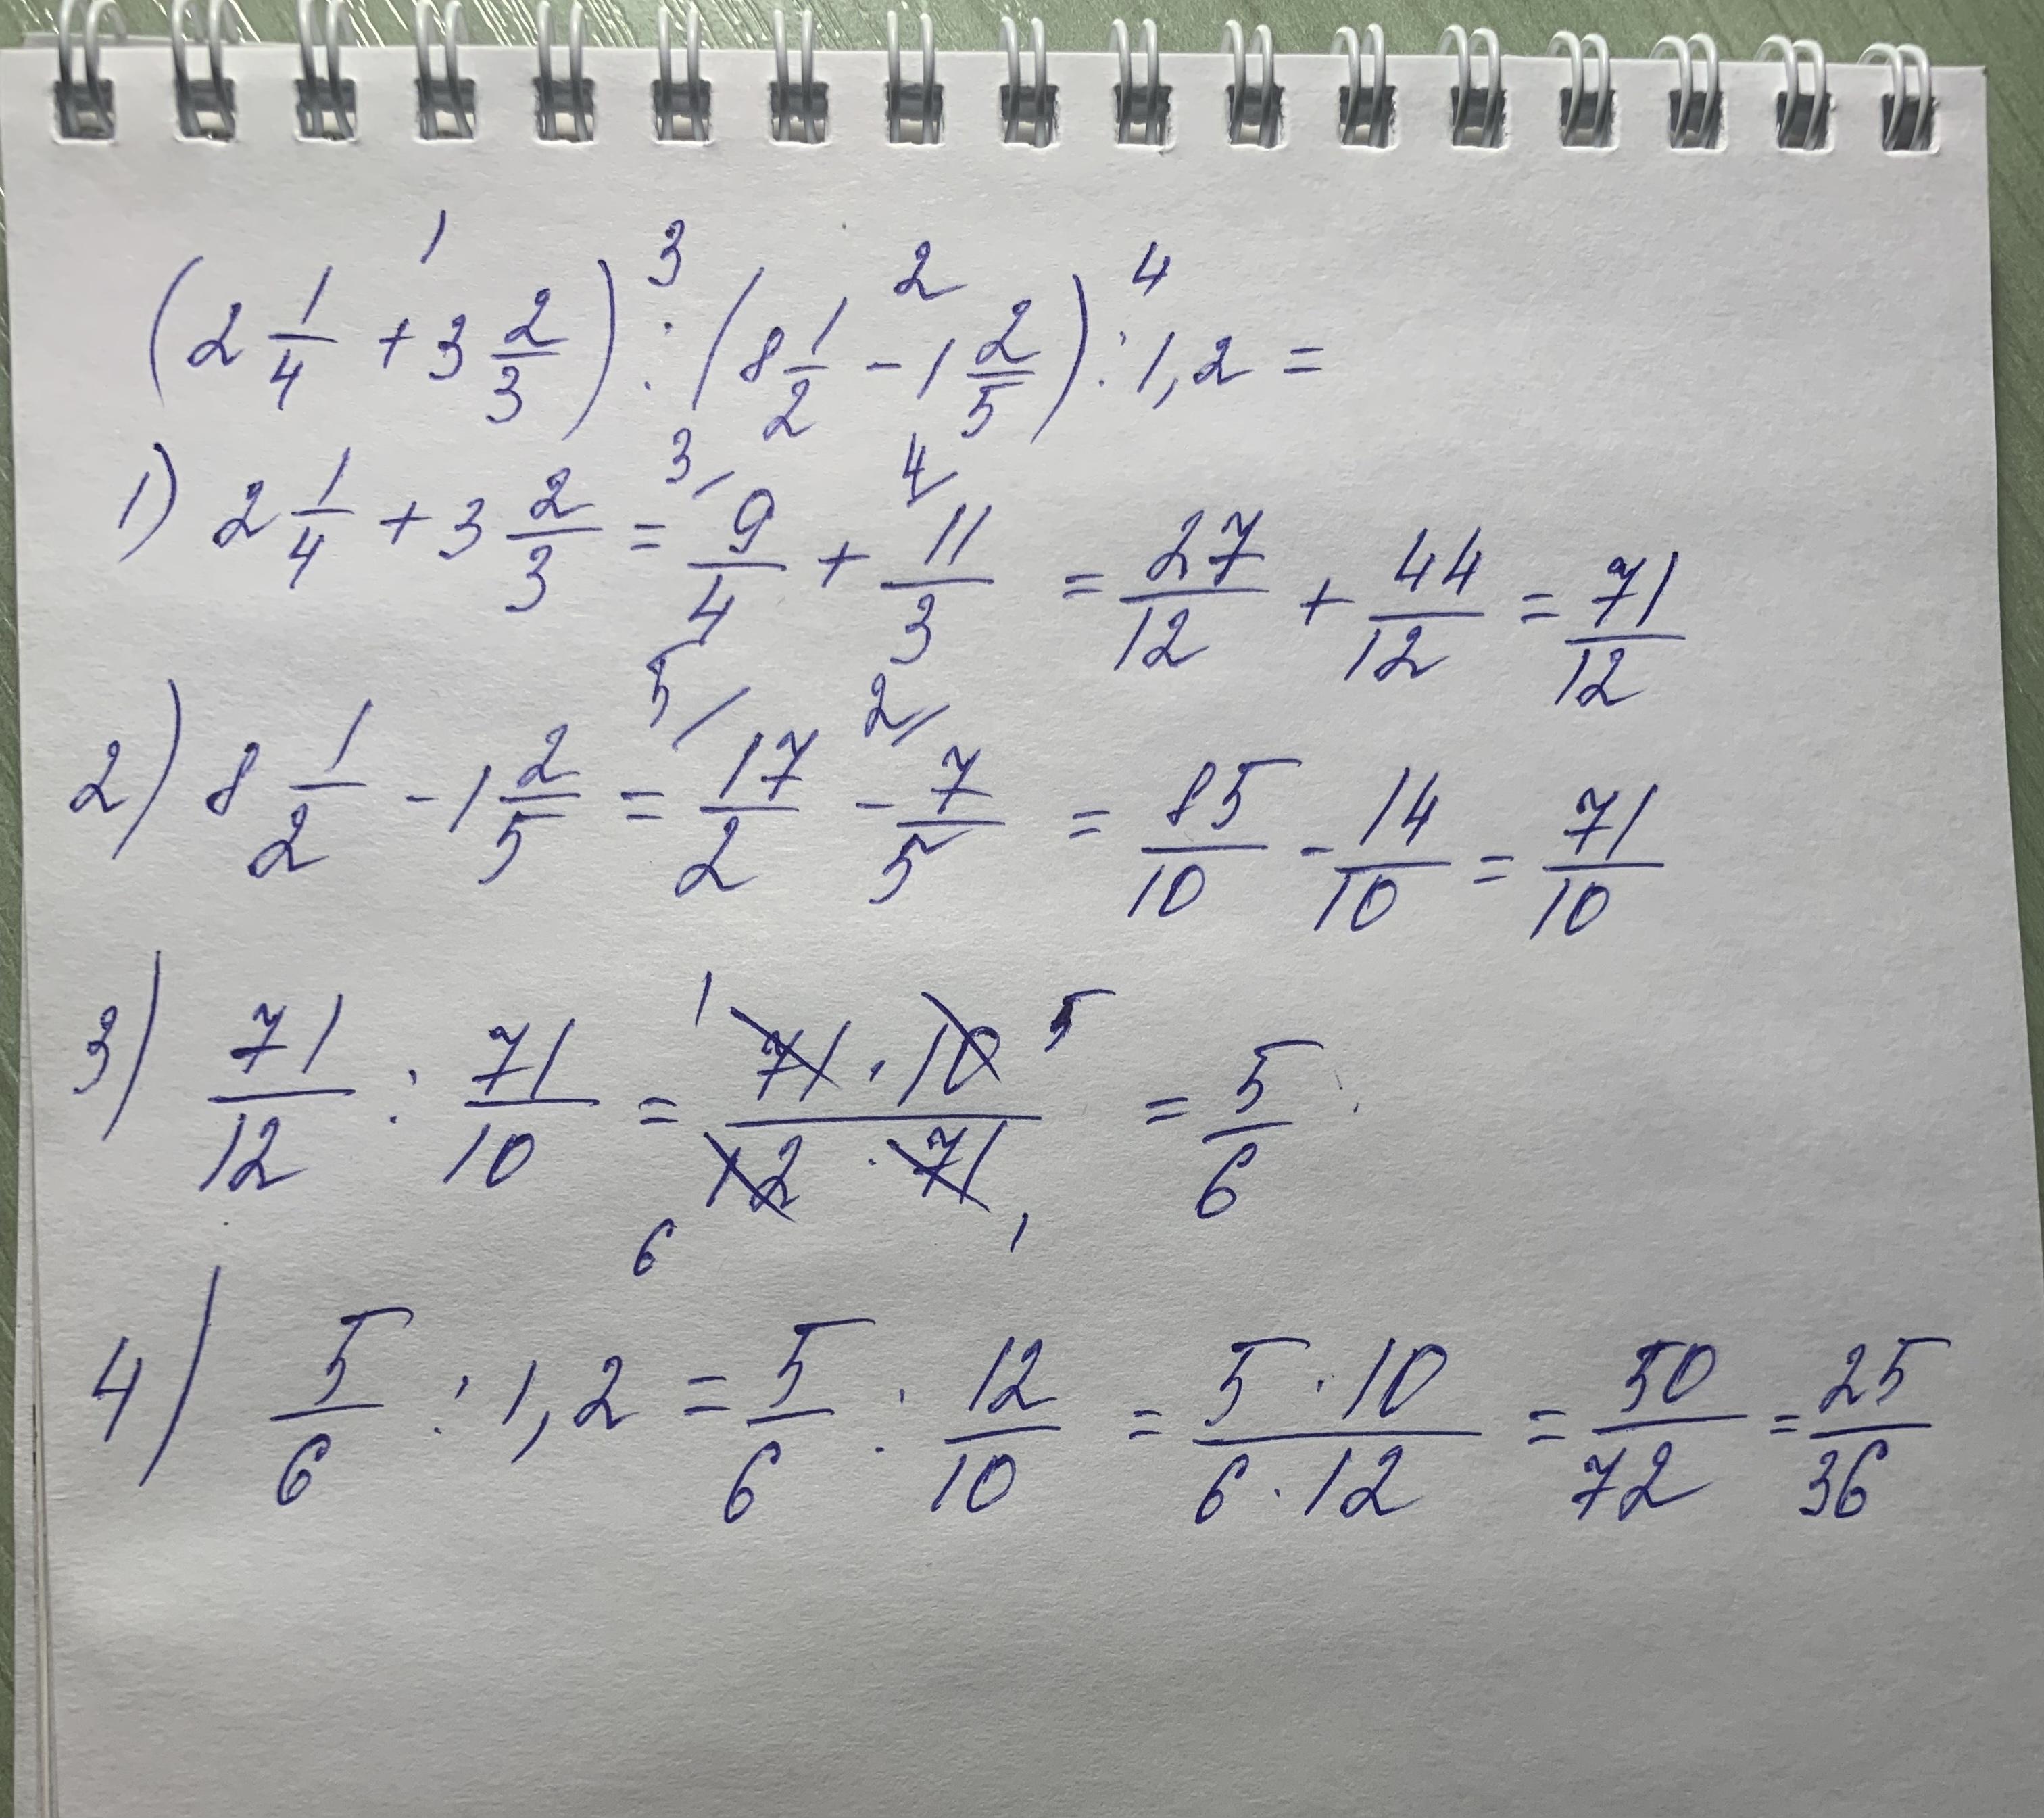 1 3 2 4
(2 1/4 + 3 2/3) : (8 1/2 - 1 2/5) : 1,2 =
1) 2 1/4 + 3 2/3 = 3/ 9/4 + 4/ 11/3 = 27/12 + 44/12 = 71/12
2) 8 1/2 - 1 2/5 = 5/ 17/2 - 2/ 7/5 = 85/10 - 14/10 = 71/10
3) 71/12 : 71/10 = 1 71 · 10 5 / 6 12 · 71 1 = 5/6
4) 5/6 : 1,2 = 5/6 : 12/10 = 5 · 10 / 6 · 12 = 50/72 = 25/36